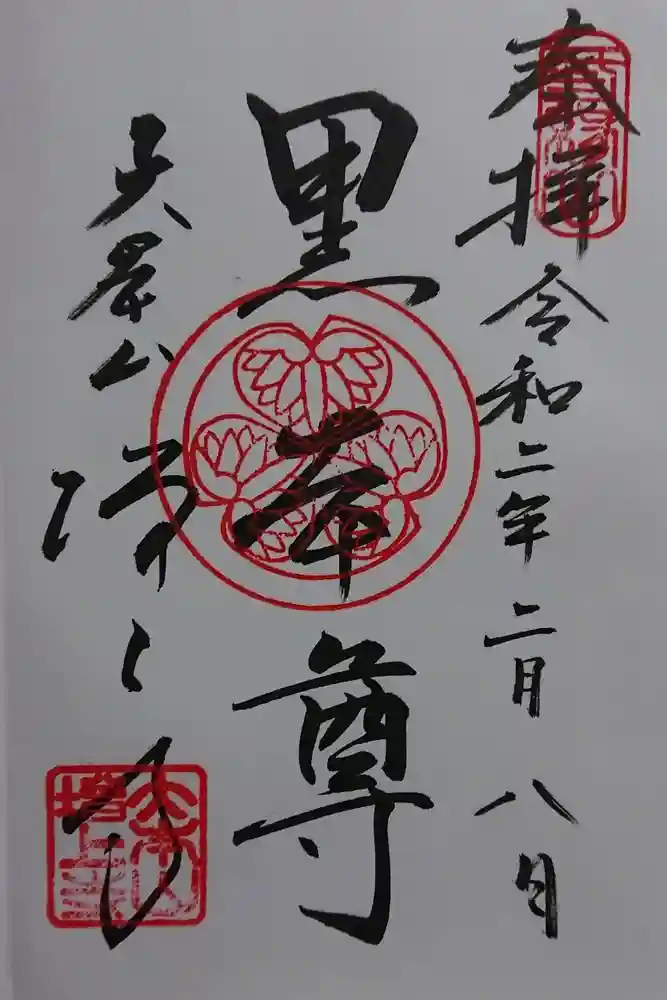 奉拝
令和二年二月八日
黒本尊
大本山
増上寺
大本山
増上寺